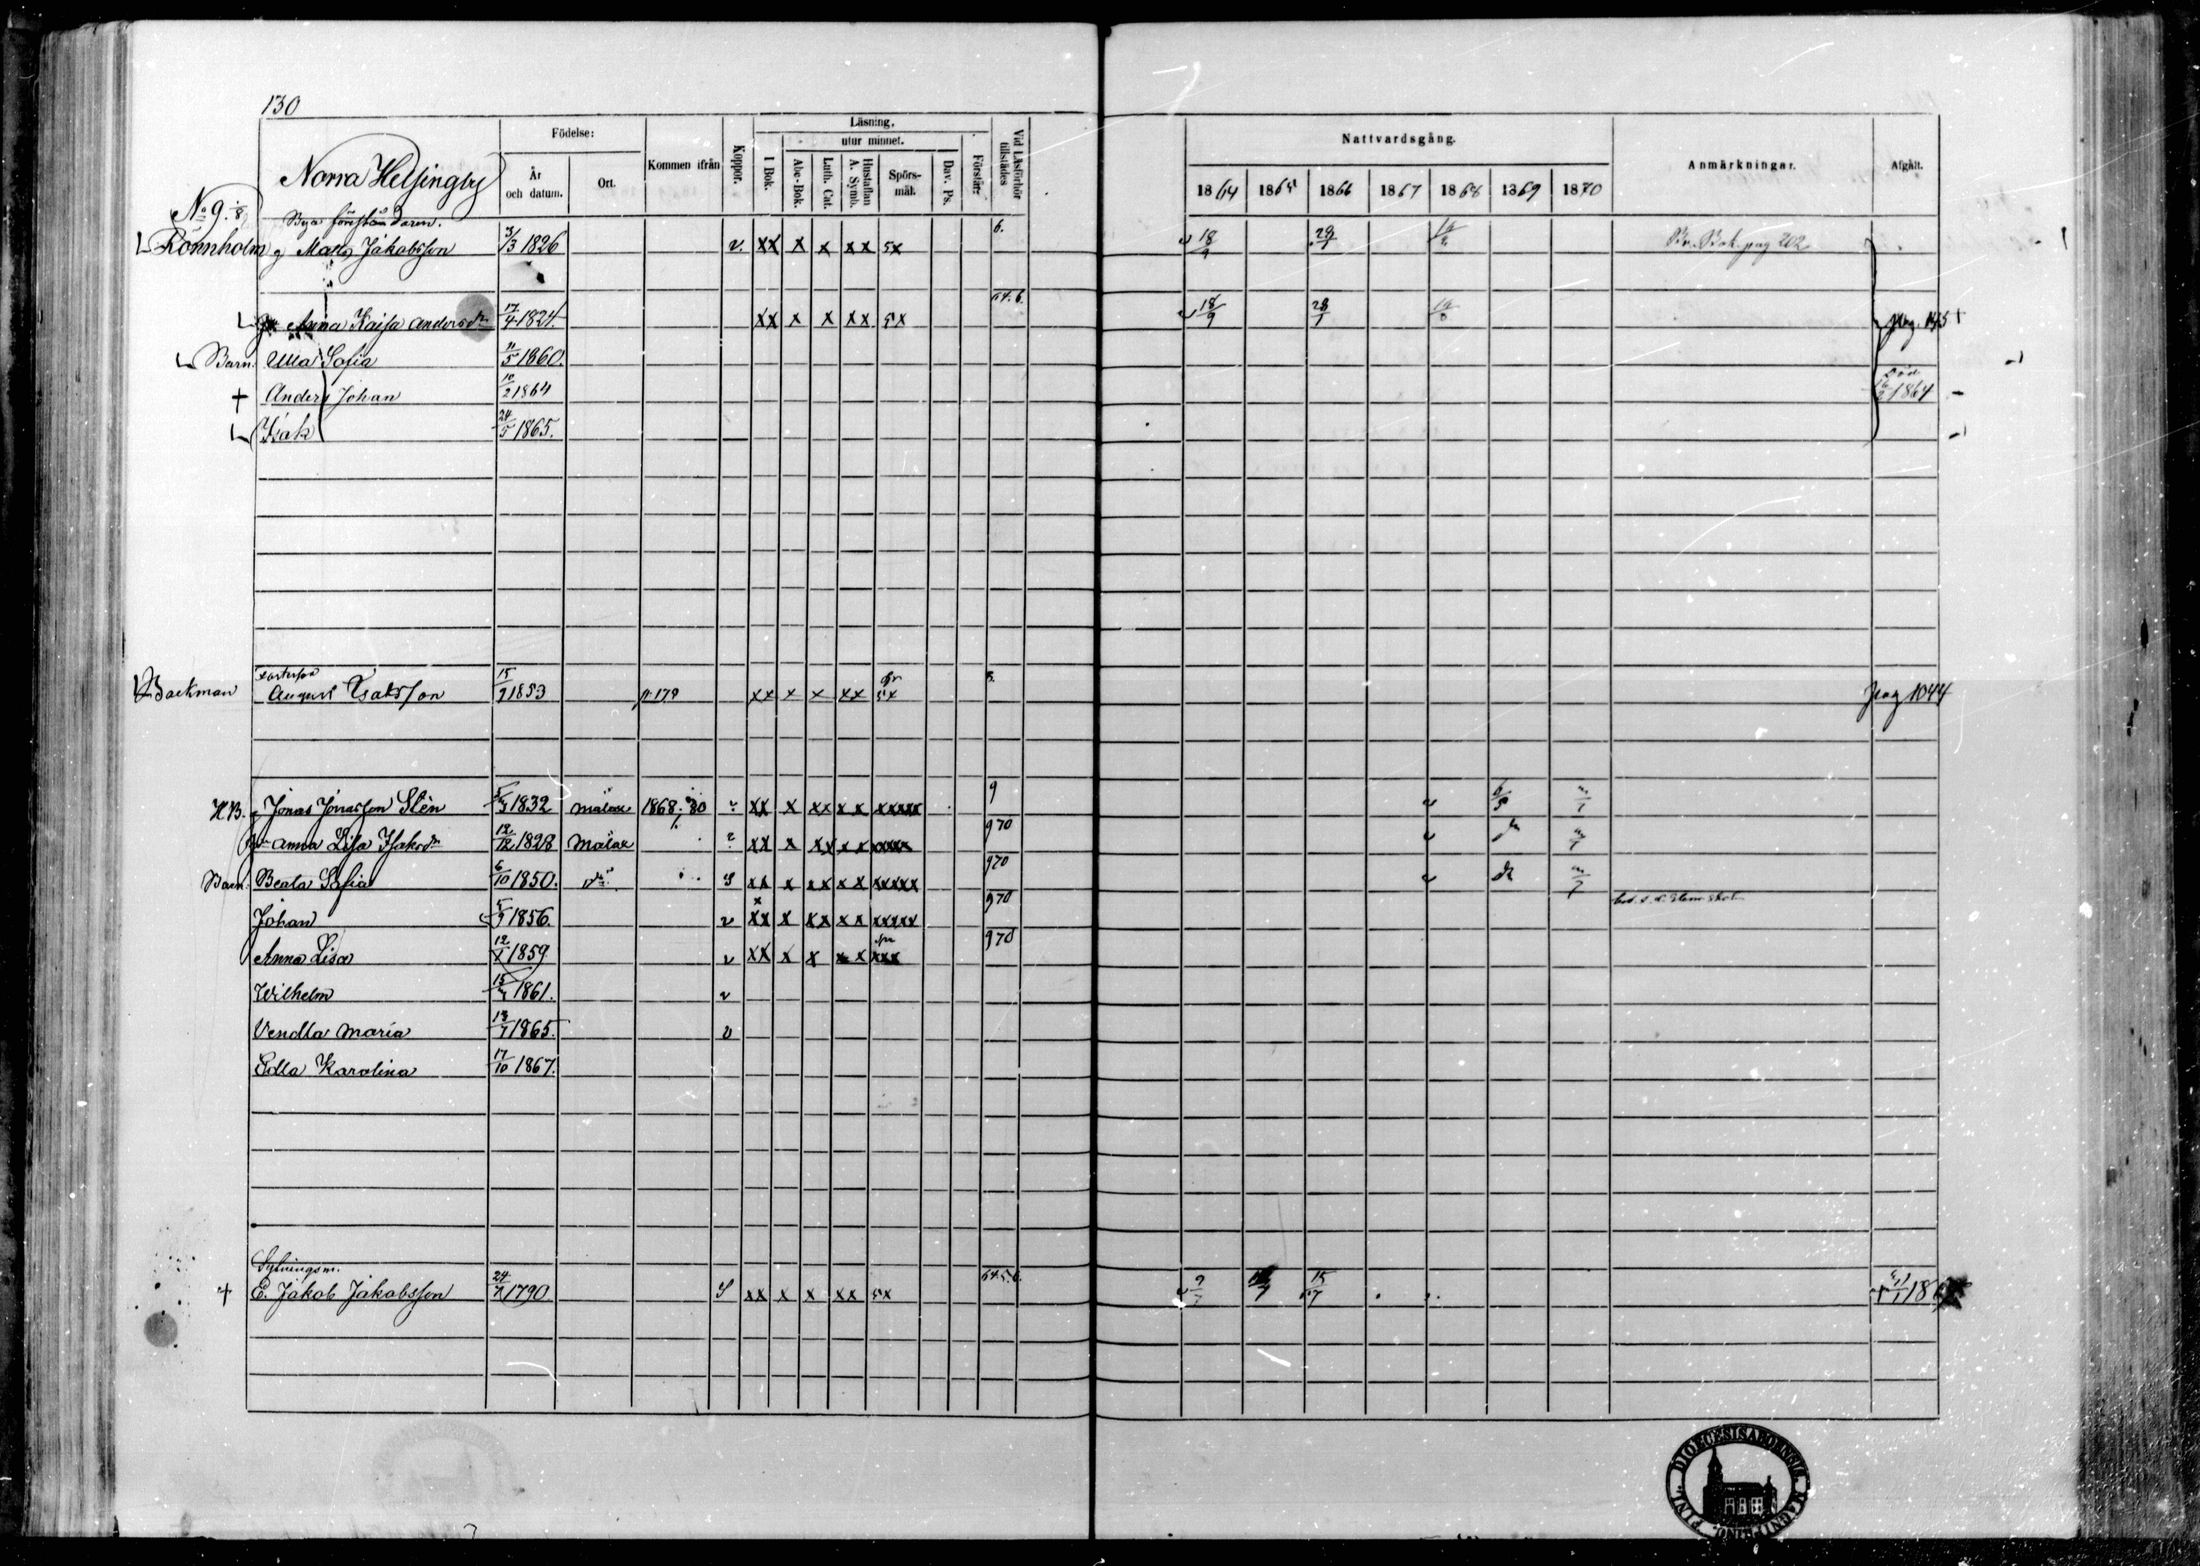 130
Norra Helsingby
Födelse:
År och datum.
Ort.
Kommen ifrån
Koppor.
Läsning.
utur minnet.
I Bok.
Abc-Bok.
Luth. Cat.
Hustaflan A. Symb.
Spörs-mål.
Dav. Ps.
Förstår:
Vid Läsförhör tillstädes
Nattvardsgång.
1864 1865 1866 1867 1868 1869 1870
Anmärkningar.
Afgått.
No 9. 1/8
Bya föreståndaren.
Rönnholm g Mats Jakobsson 3/3 1826 v xx x x xx 5x 6. 18/9 28/7
pag 202
Anna Kajsa Andersdr 17/4 1824. xx x x xx 5x 64.6. 18/9 28/7
Barn. Ulla Sofia 11/5 1860.
† Anders Johan 10/2 1864 Död 1864
Isak 24/5 1865.
Backman August Isaksson 15/9 1853 p. 179 xx x x xx 5x pag 1044
H.B. g Jonas Jonasson Stén 1832 Malax 1868, 80 v xx x xx xx xxxxx 9 6/5
Anna Lisa Isaksdr 12/12 1828 Malax xx x xx xx 970 do
Barn. Beata Sofia 6/10 1850. do S xx x xx xx xxxxx 970 do
Johan 5/9 1856. v xx x xx xx xxxxx 970
Anna Lisa 12/1 1859 v xx x x x xxx 970
Wilhelm 15/4 1861. v
Vendla Maria 13/7 1865. v
Edla Karolina 17/10 1867.
Sytningsm.
† E. Jakob Jakobsson 24/7 1790 S xx x x xx 5x 64.5.6. 9/7 15/7
DIOECESIS ABOENSIS MAGNI PRINC. FINL.